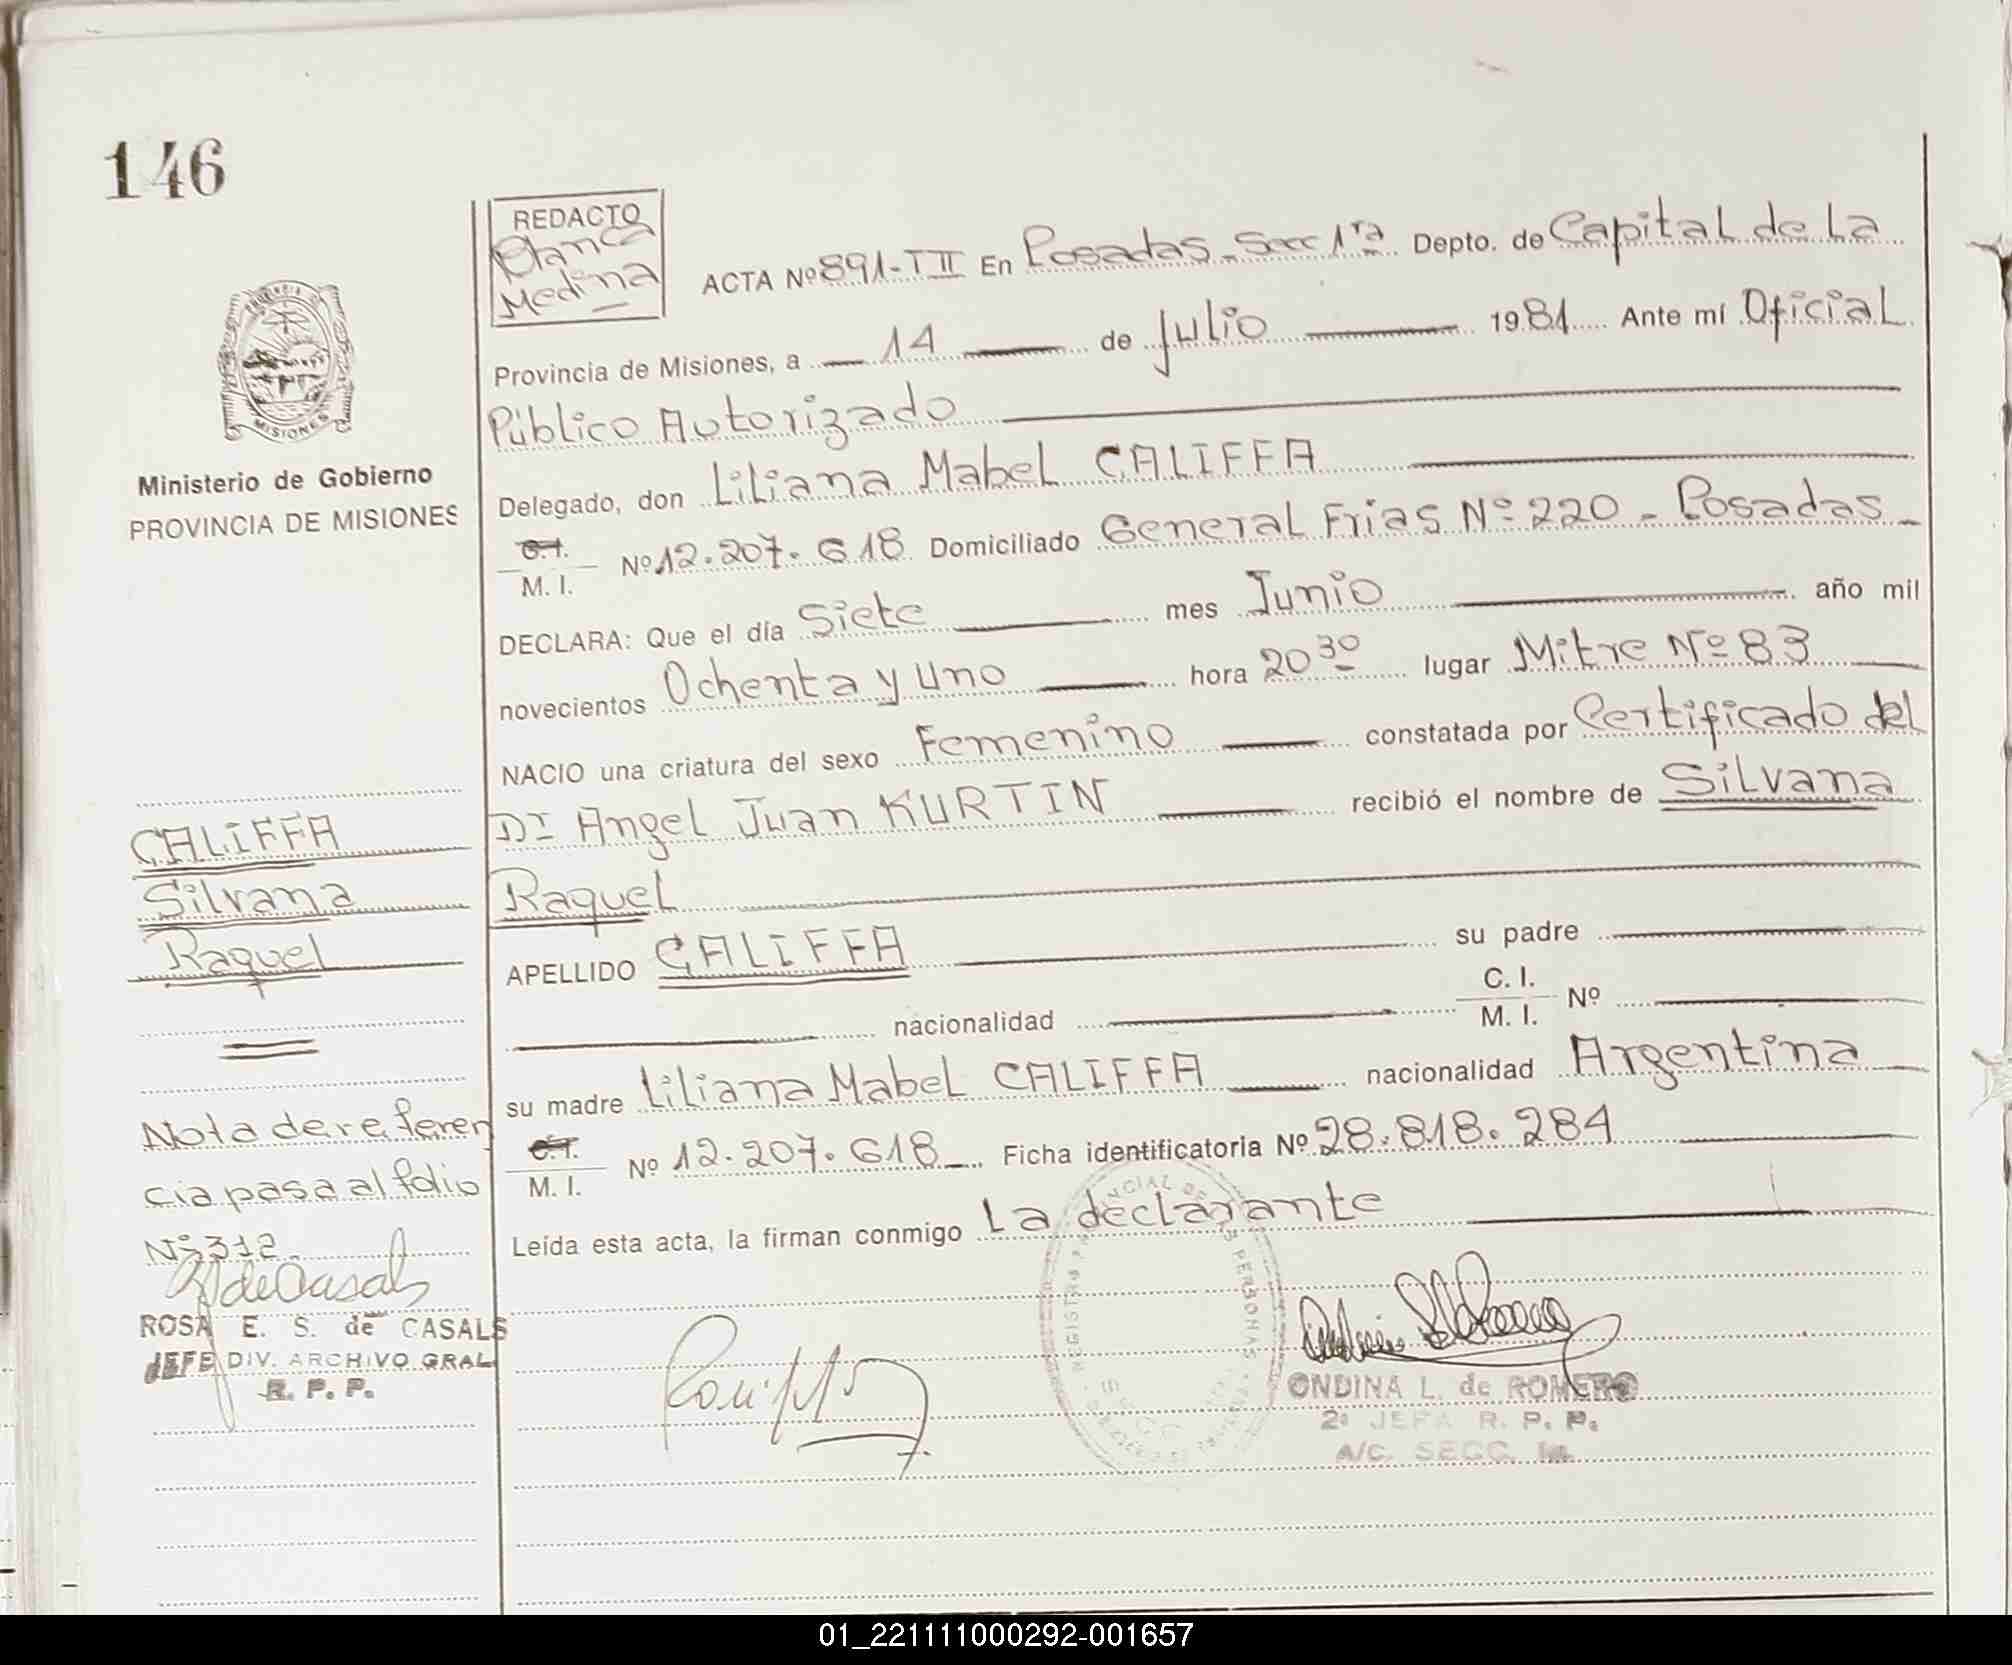 146
REDACTO
Blanca
Medina
ACTA Nº 891-TII En Posadas-Secc 1ra Depto. de Capital de La
Provincia de Misiones, a 14 de Julio 1981 Ante mí Oficial
Público Autorizado
Delegado, don Liliana Mabel CALIFFA
C.I.
M. I. Nº 12.207.618 Domiciliado General Frias Nº 220 - Posadas -
DECLARA: Que el día Siete mes Junio año mil
novecientos Ochenta y Uno hora 20 30 lugar Mitre Nº 83
NACIO una criatura del sexo Femenino constatada por Certificado del
Dr Angel Juan KURTIN recibió el nombre de Silvana
Raquel
APELLIDO CALIFFA su padre
nacionalidad C. I.
M. I. Nº
su madre Liliana Mabel CALIFFA nacionalidad Argentina
C.I.
M. I. Nº 12.207.618 Ficha identificatoria Nº 28.818.284
Leída esta acta, la firman conmigo La declarante
PROVINCIA DE
MISIONES
Ministerio de Gobierno
PROVINCIA DE MISIONES
CALIFFA
Silvana
Raquel
Nota de referen
cia pasa al folio
Nº 312
R de Casals
ROSA E. S. de CASALS
JEFE DIV. ARCHIVO GRAL
R. P. P.
REGISTRO PROVINCIAL DE LAS PERSONAS
ONDINA L. de ROMERO
2ª JEFA R. P. P.
A/C. SECC. 1a.
01_221111000292-001657